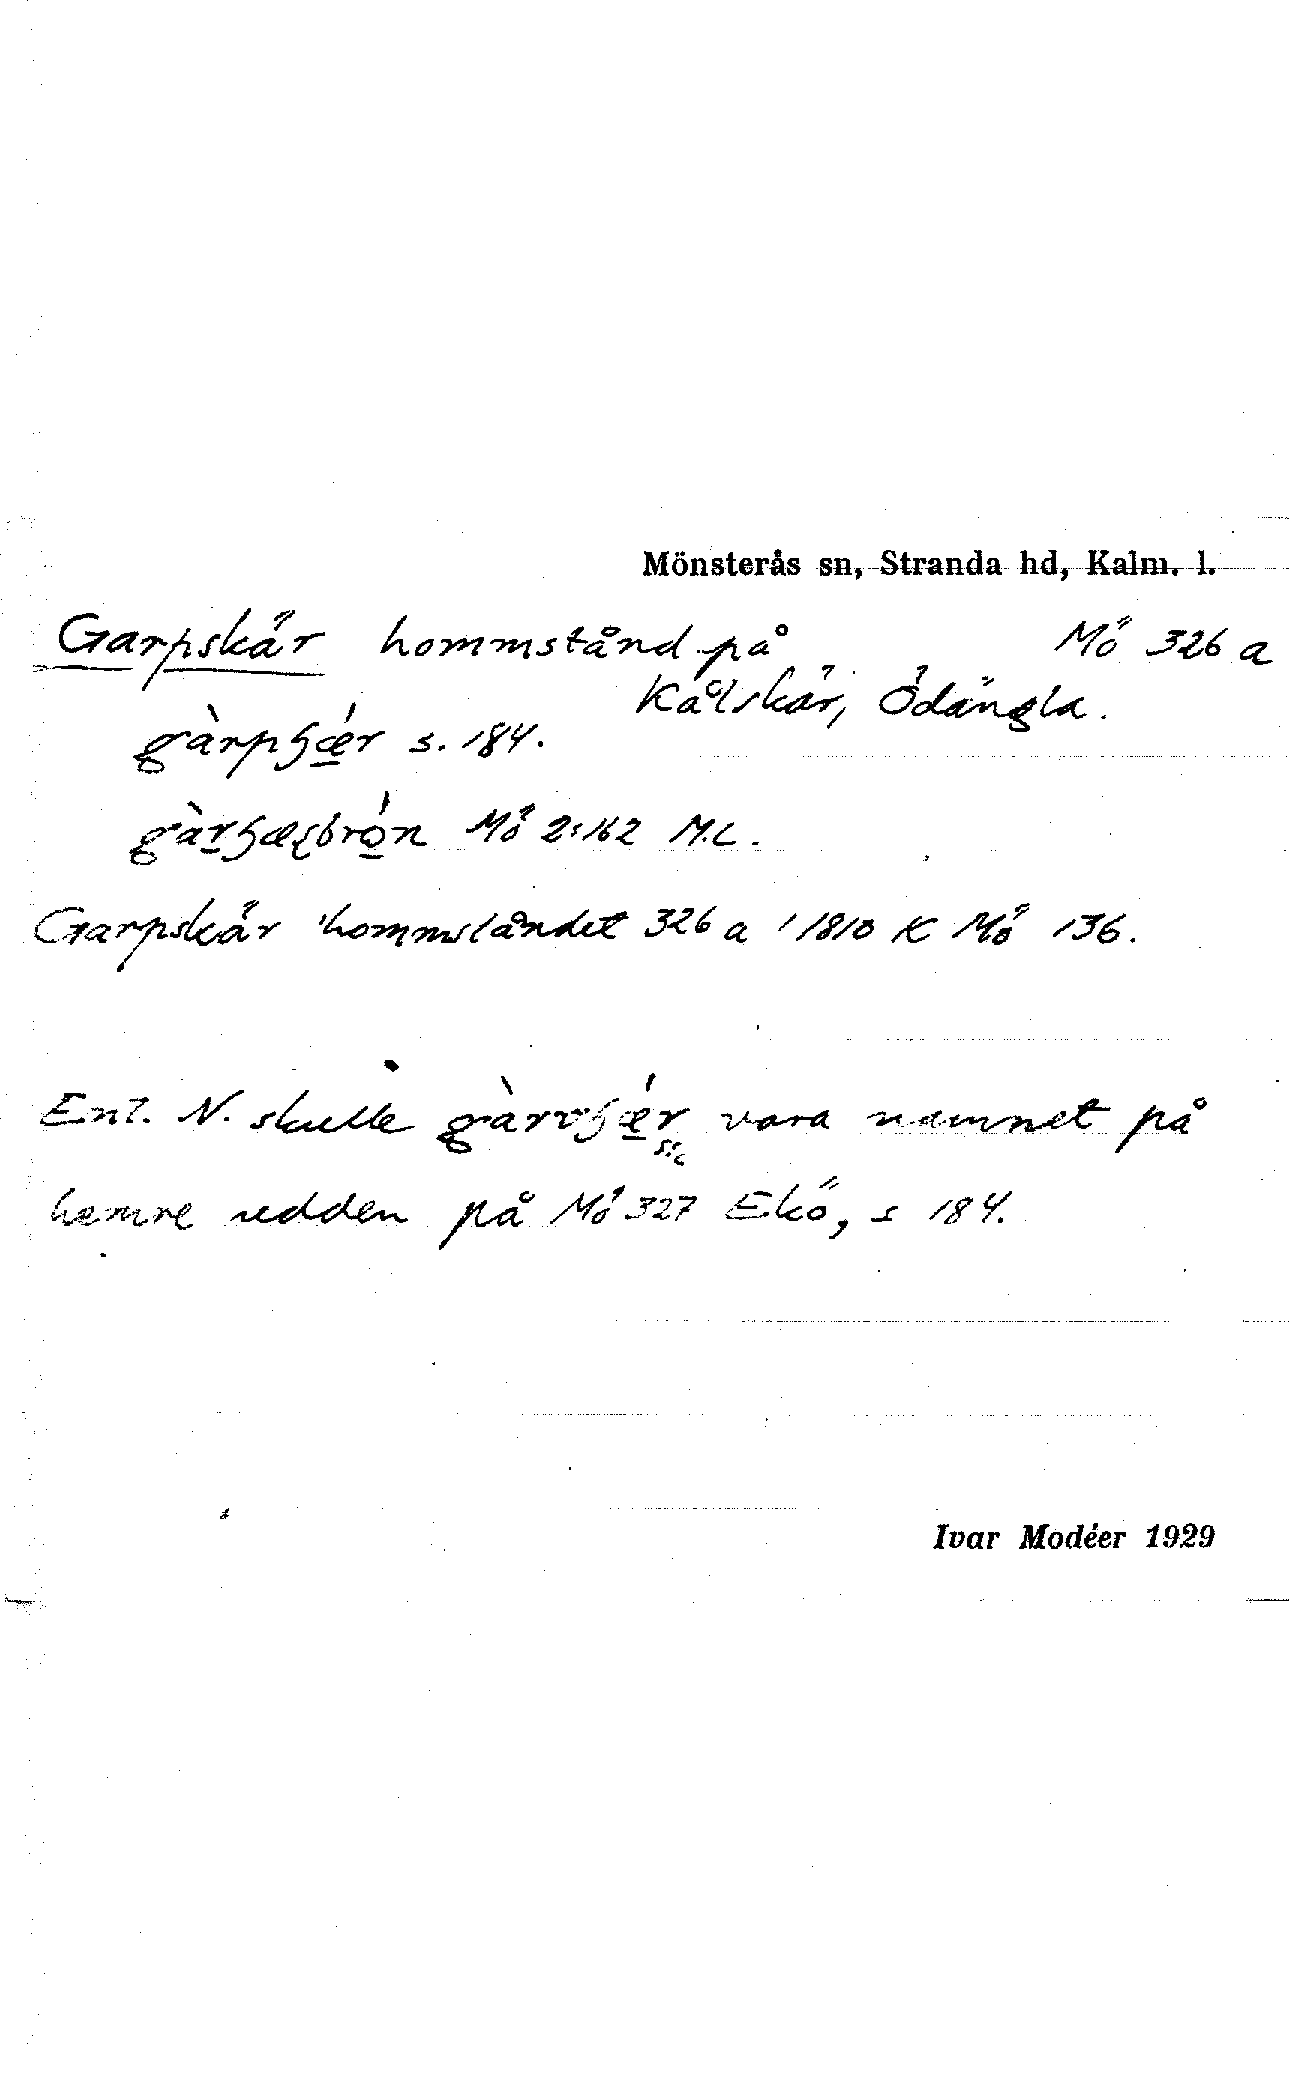 Mönsterås sn, Stranda hd, Kalm. l.
Garpskär hommstånd på Mö 326 a
Kålskär, Ödängla.
gàrpʃǽr s. 184.
Mö 2:162 M.C.
Garpskär 'hommståndet 326 a' 1810 K Mö 136.
Enl. N. skulle gàrvʃǽr vara namnet på
sic
hemre udden på Mö 327 Ekö, s 184.
Ivar Modéer 1929